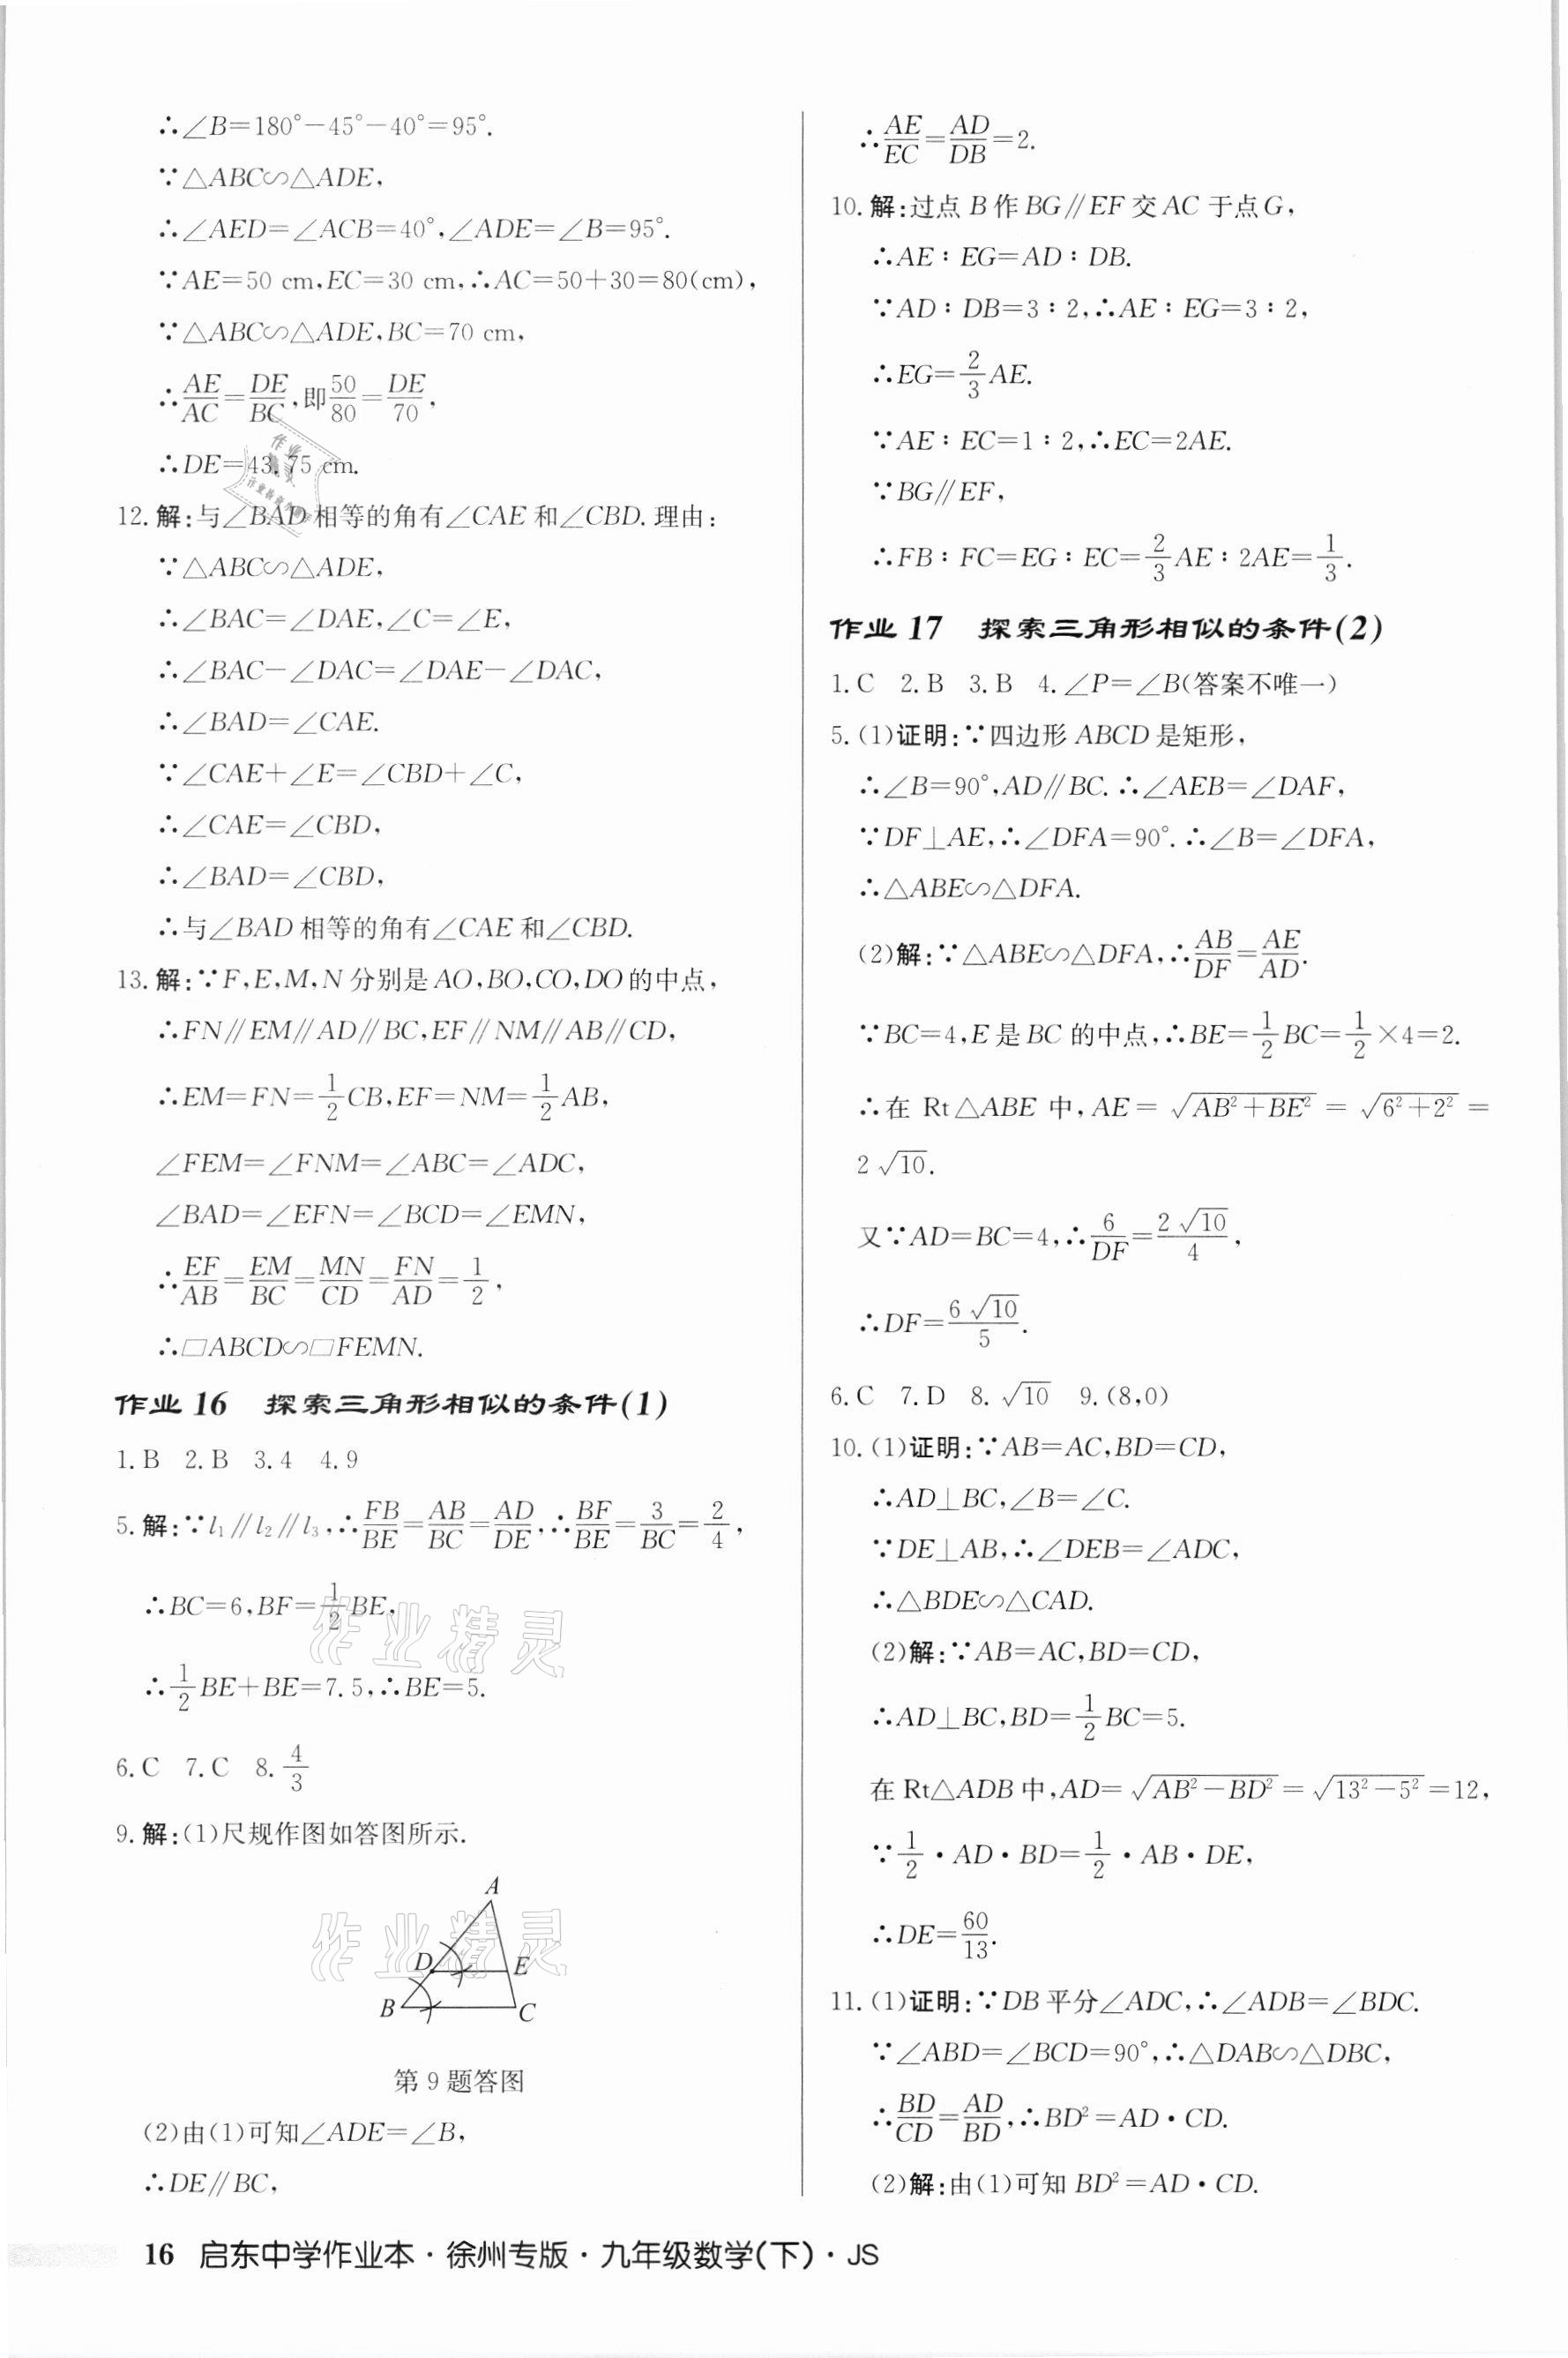 ∴∠B=180°-45°-40°=95°.
∵△ABC∽△ADE,
∴∠AED=∠ACB=40°,∠ADE=∠B=95°.
∵AE=50 cm,EC=30 cm,∴AC=50+30=80(cm),
∵△ABC∽△ADE,BC=70 cm,
∴AE/AC=DE/BC,即50/80=DE/70,
∴DE=43.75 cm.
12.解:与∠BAD相等的角有∠CAE和∠CBD.理由:
∵△ABC∽△ADE,
∴∠BAC=∠DAE,∠C=∠E,
∴∠BAC-∠DAC=∠DAE-∠DAC,
∴∠BAD=∠CAE.
∵∠CAE+∠E=∠CBD+∠C,
∴∠CAE=∠CBD,
∴∠BAD=∠CBD,
∴与∠BAD相等的角有∠CAE和∠CBD.
13.解:∵F,E,M,N分别是AO,BO,CO,DO的中点,
∴FN∥EM∥AD∥BC,EF∥NM∥AB∥CD,
∴EM=FN=1/2CB,EF=NM=1/2AB,
∠FEM=∠FNM=∠ABC=∠ADC,
∠BAD=∠EFN=∠BCD=∠EMN,
∴EF/AB=EM/BC=MN/CD=FN/AD=1/2,
∴□ABCD∽□FEMN.
作业16 探索三角形相似的条件(1)
1.B 2.B 3.4 4.9
5.解:∵l₁∥l₂∥l₃,∴FB/BE=AB/BC=AD/DE,∴BF/BE=3/BC=2/4,
∴BC=6,BF=1/2BE,
∴1/2BE+BE=7.5,∴BE=5.
6.C 7.C 8.4/3
9.解:(1)尺规作图如答图所示.
A
D
E
B
C
第9题答图
(2)由(1)可知∠ADE=∠B,
∴DE∥BC,
∴AE/EC=AD/DB=2.
10.解:过点B作BG∥EF交AC于点G,
∴AE∶EG=AD∶DB.
∵AD∶DB=3∶2,∴AE∶EG=3∶2,
∴EG=2/3AE.
∵AE∶EC=1∶2,∴EC=2AE.
∵BG∥EF,
∴FB∶FC=EG∶EC=2/3AE∶2AE=1/3.
作业17 探索三角形相似的条件(2)
1.C 2.B 3.B 4.∠P=∠B(答案不唯一)
5.(1)证明:∵四边形ABCD是矩形,
∴∠B=90°,AD∥BC.∴∠AEB=∠DAF,
∵DF⊥AE,∴∠DFA=90°.∴∠B=∠DFA,
∴△ABE∽△DFA.
(2)解:∵△ABE∽△DFA,∴AB/DF=AE/AD.
∵BC=4,E是BC的中点,∴BE=1/2BC=1/2×4=2.
∴在Rt△ABE中,AE=√(AB²+BE²)=√(6²+2²)=
2√10.
又∵AD=BC=4,∴6/DF=2√10/4,
∴DF=6√10/5.
6.C 7.D 8.√10 9.(8,0)
10.(1)证明:∵AB=AC,BD=CD,
∴AD⊥BC,∠B=∠C.
∵DE⊥AB,∴∠DEB=∠ADC,
∴△BDE∽△CAD.
(2)解:∵AB=AC,BD=CD,
∴AD⊥BC,BD=1/2BC=5.
在Rt△ADB中,AD=√(AB²-BD²)=√(13²-5²)=12,
∵1/2·AD·BD=1/2·AB·DE,
∴DE=60/13.
11.(1)证明:∵DB平分∠ADC,∴∠ADB=∠BDC.
∵∠ABD=∠BCD=90°,∴△DAB∽△DBC,
∴BD/CD=AD/BD,∴BD²=AD·CD.
(2)解:由(1)可知BD²=AD·CD.
16 启东中学作业本·徐州专版·九年级数学(下)·JS
作业精灵
作业精灵